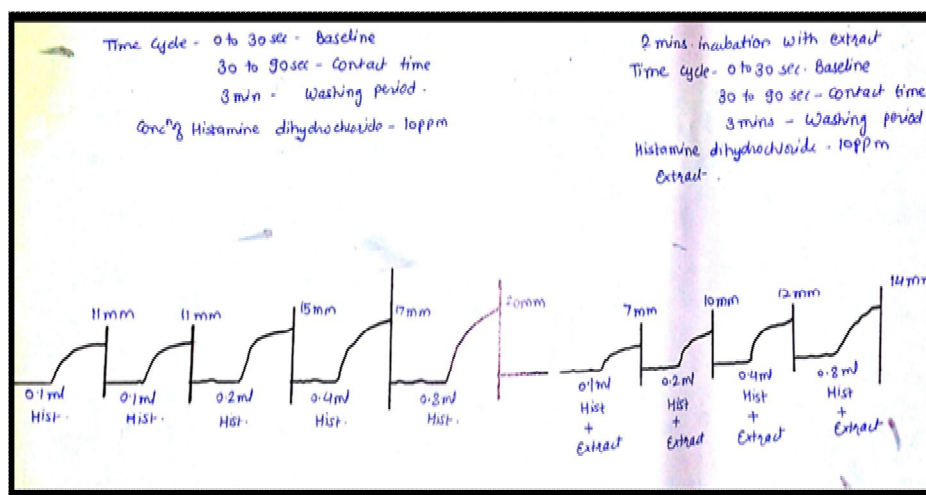 Time cycle - 0 to 30 sec - Baseline
30 to 90 sec - Contact time
3 min - Washing period.
Concⁿ of Histamine dihydrochloride - 10ppm
2 mins. incubation with extract
Time cycle - 0 to 30 sec. Baseline
30 to 90 sec - Contact time
3 mins - Washing period
Histamine dihydrochloride - 10ppm
Extract - .
11mm 11mm 15mm 17mm 20mm
0.1ml 0.1ml 0.2ml 0.4ml 0.8ml
Hist. Hist. Hist. Hist. Hist.
7mm 10mm 12mm 14mm
0.1ml 0.2ml 0.4ml 0.8ml
Hist Hist Hist Hist
+ + + +
Extract Extract Extract Extract